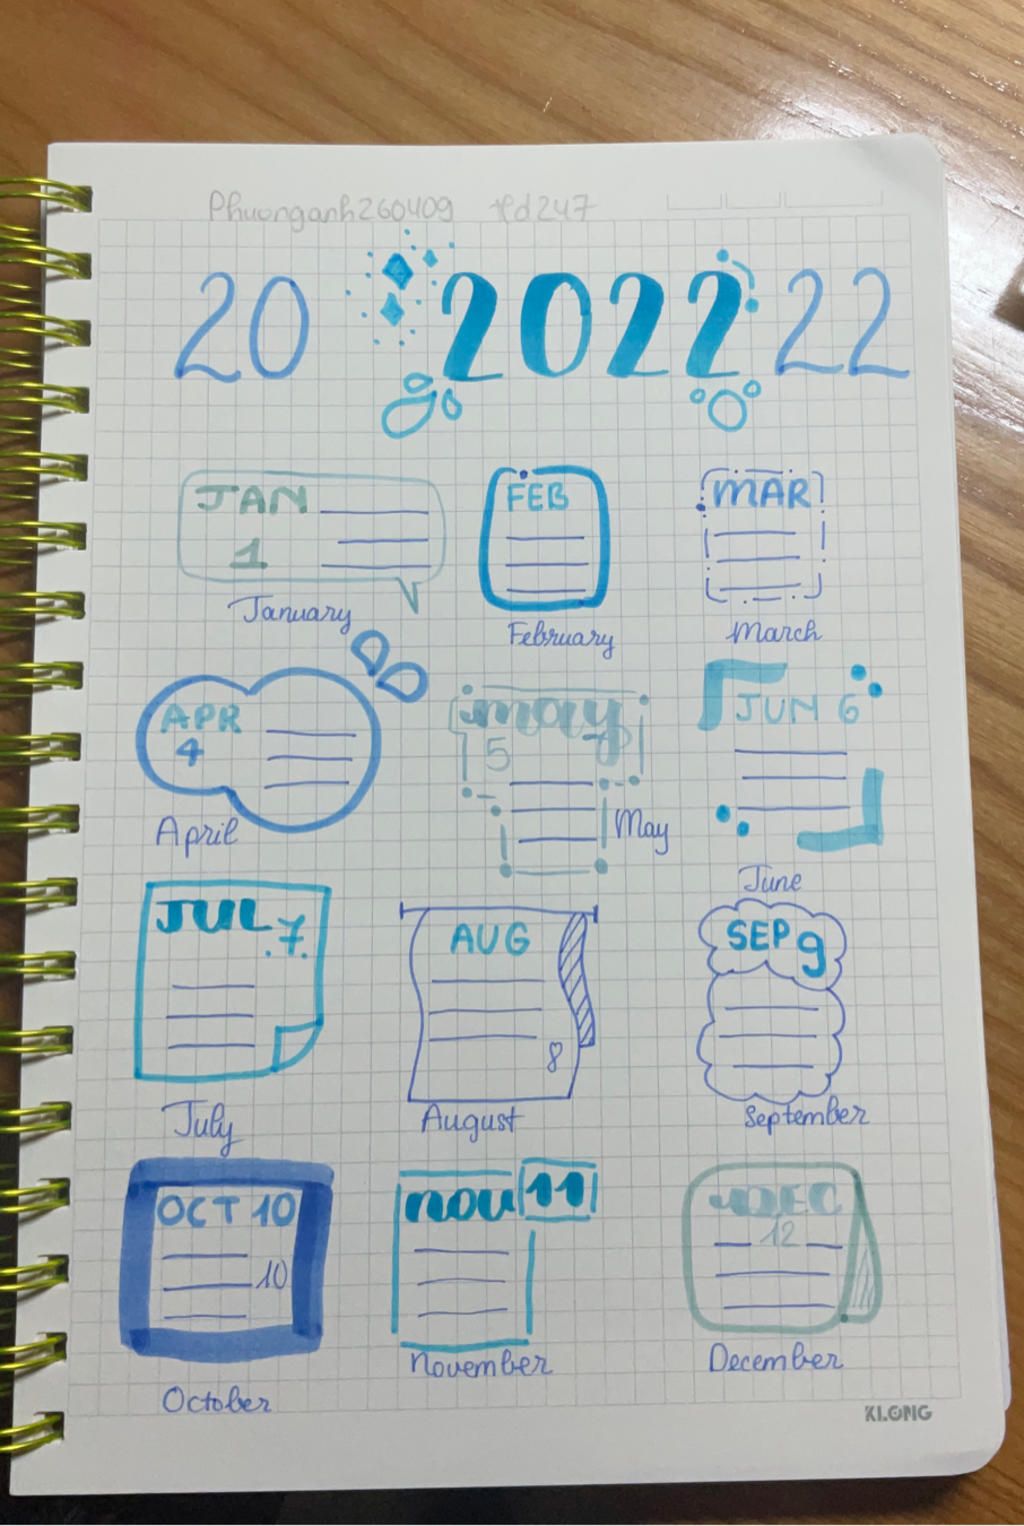 Phuonganh260409
20 2022 22
JAN
1
January
FEB
February
MAR
March
APR
4
April
may
5
May
JUN 6
June
JUL 7
July
AUG
8
August
SEP 9
September
OCT 10
10
October
nov 11
November
DEC
12
December
KLONG